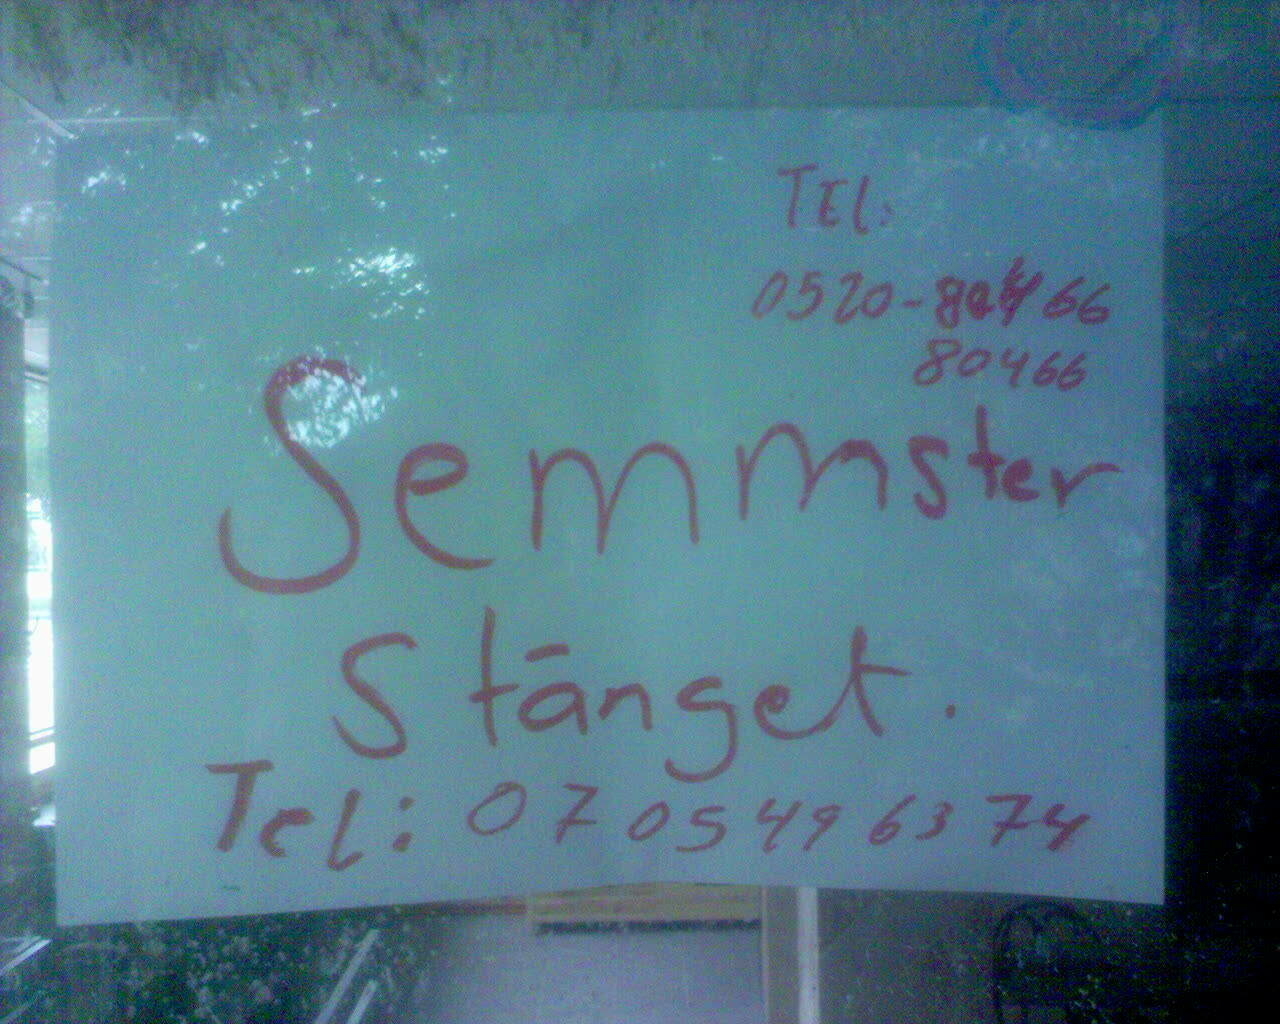 TEL:
0520-80466
80466
Semmster
Stänget.
Tel: 0705496374